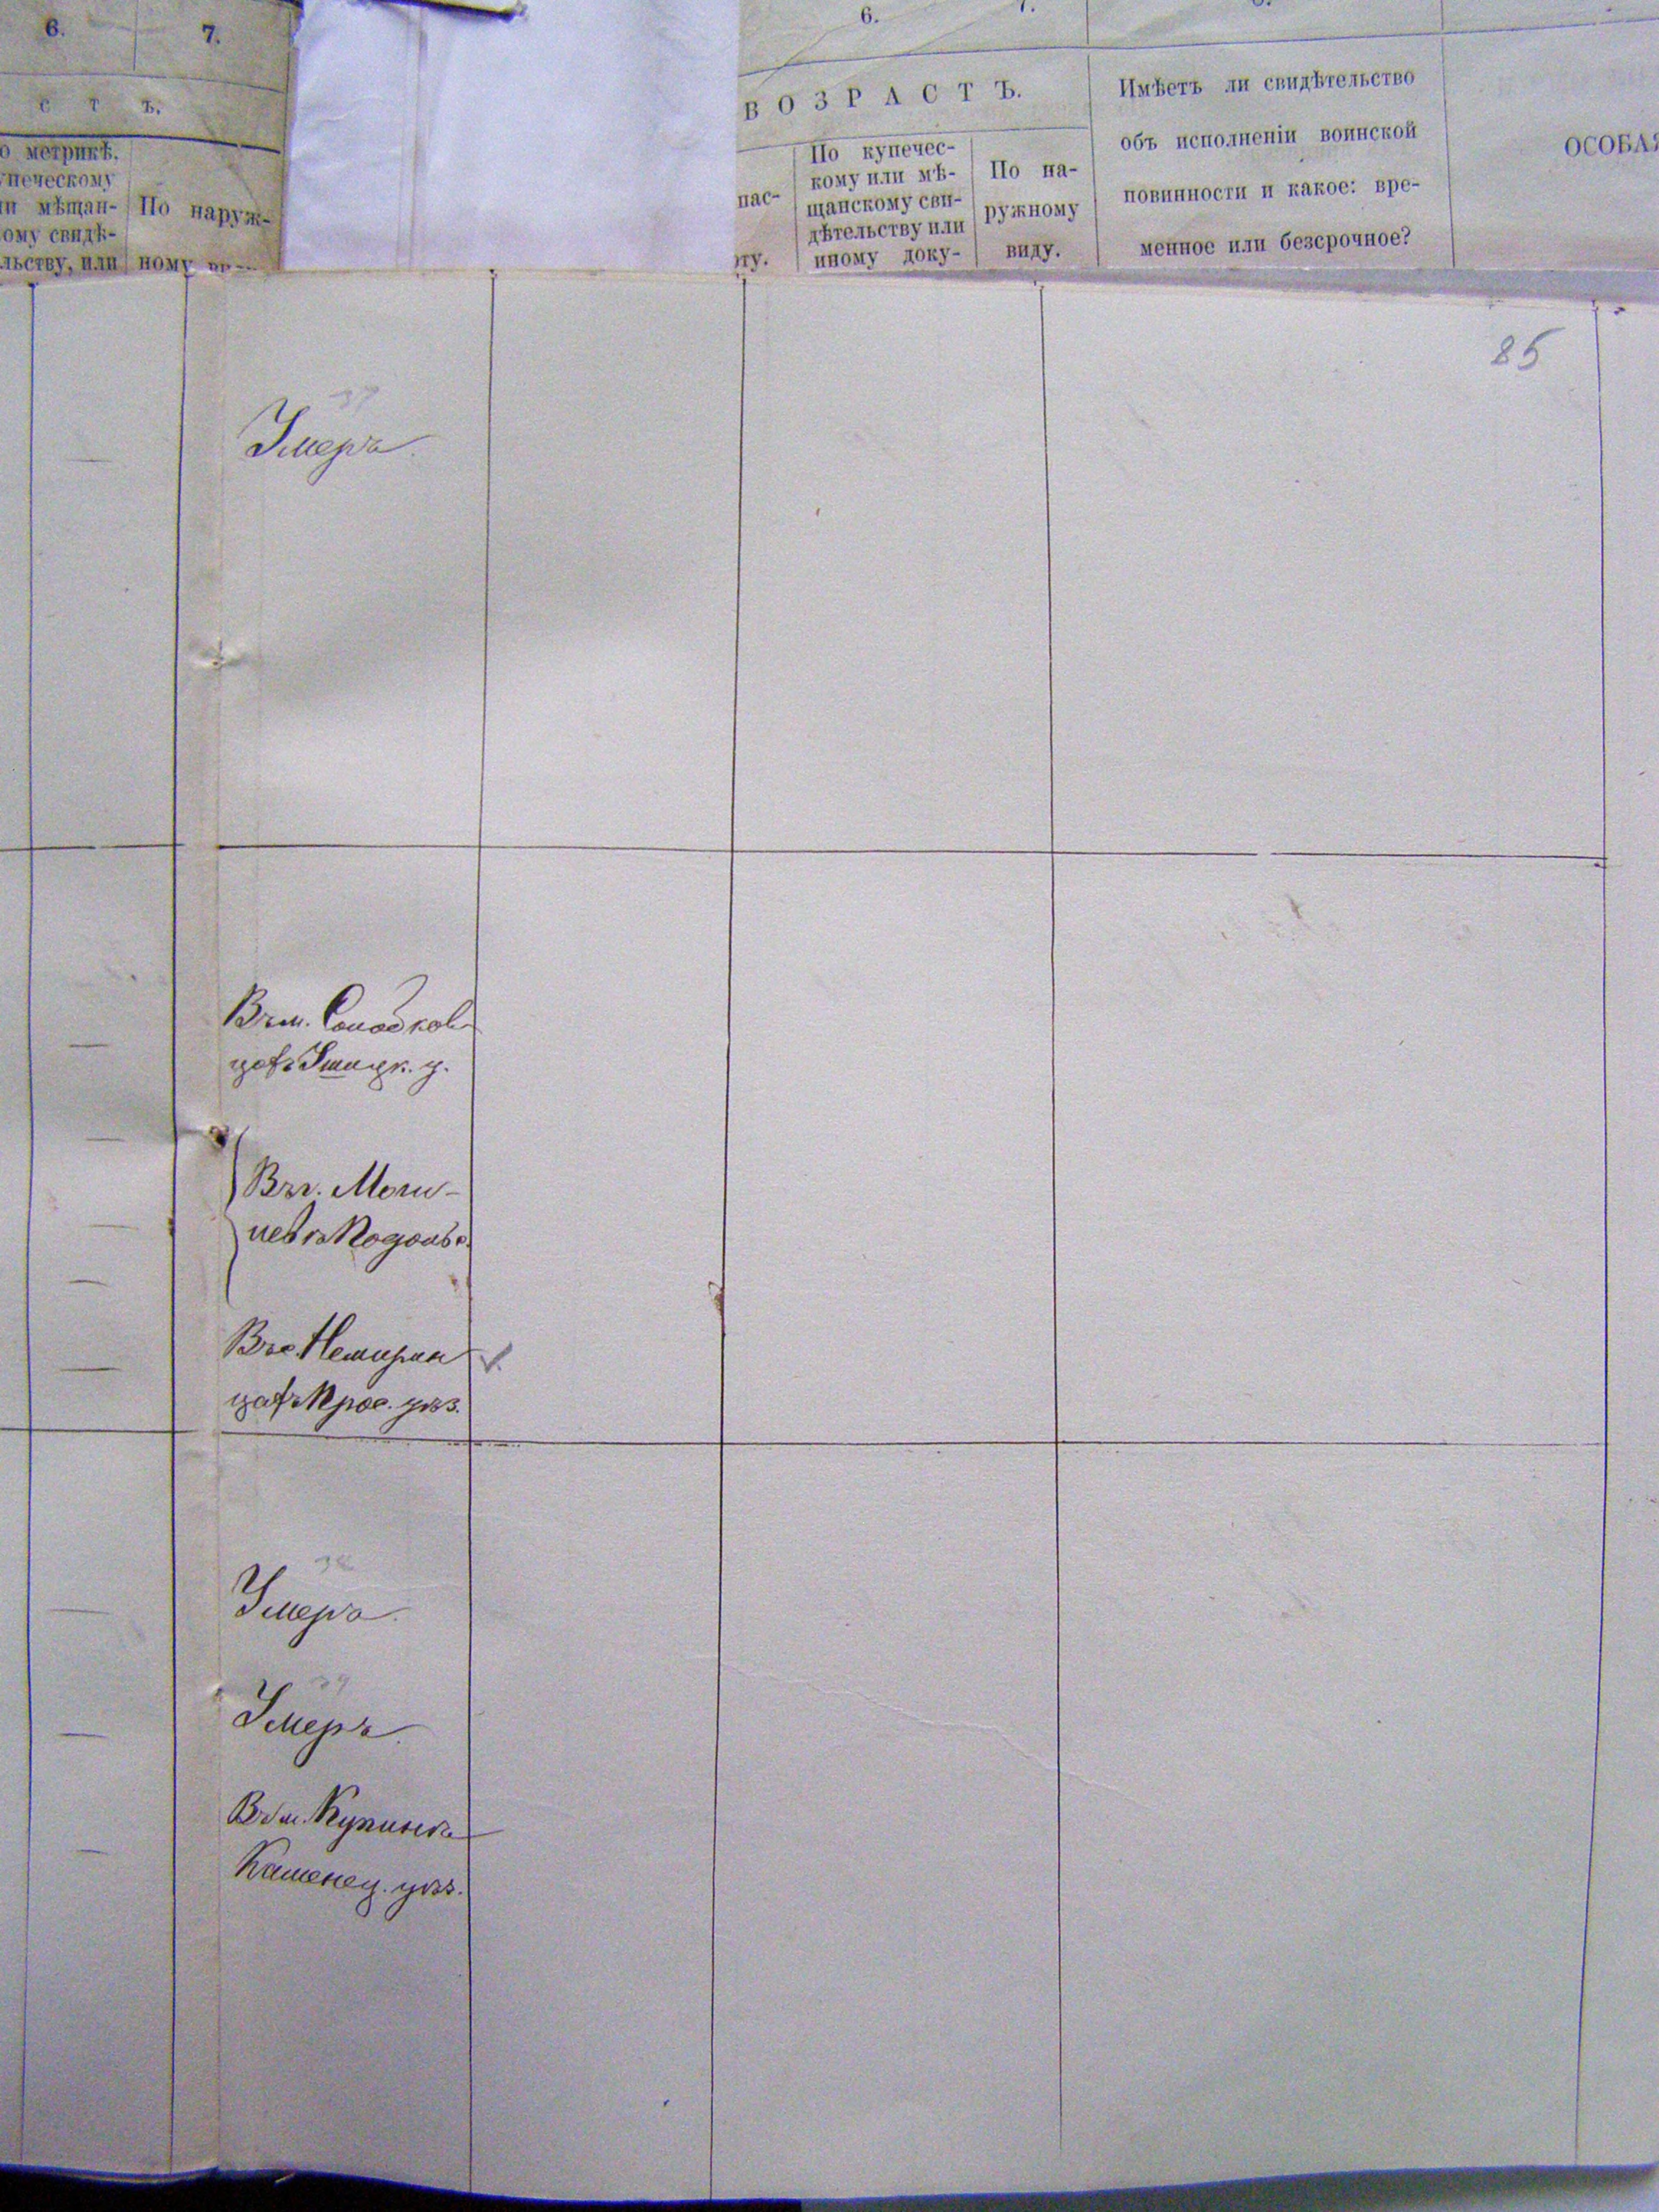 6.
7.
С Т Ъ.
о метрикѣ,
упеческому
и мѣщан-
ому свидѣ-
льству, или
По наруж-
ному
6.
7.
ВОЗРАСТЪ.
пас-
рту.
По купечес-
кому или мѣ-
щанскому сви-
дѣтельству или
иному доку-
По на-
ружному
виду.
Имѣетъ ли свидѣтельство
объ исполненіи воинской
повинности и какое: вре-
менное или безсрочное?
ОСОБАЯ
85
37
Умеръ.
Въ м. Солодков
цахъ Ушицк. у.
Въ г. Моги-
левѣ Подольс.
Въ с. Немирин
цахъ Прос. уѣз.
38
Умеръ.
39
Умеръ.
Въ м. Купинѣ
Каменец. уѣз.